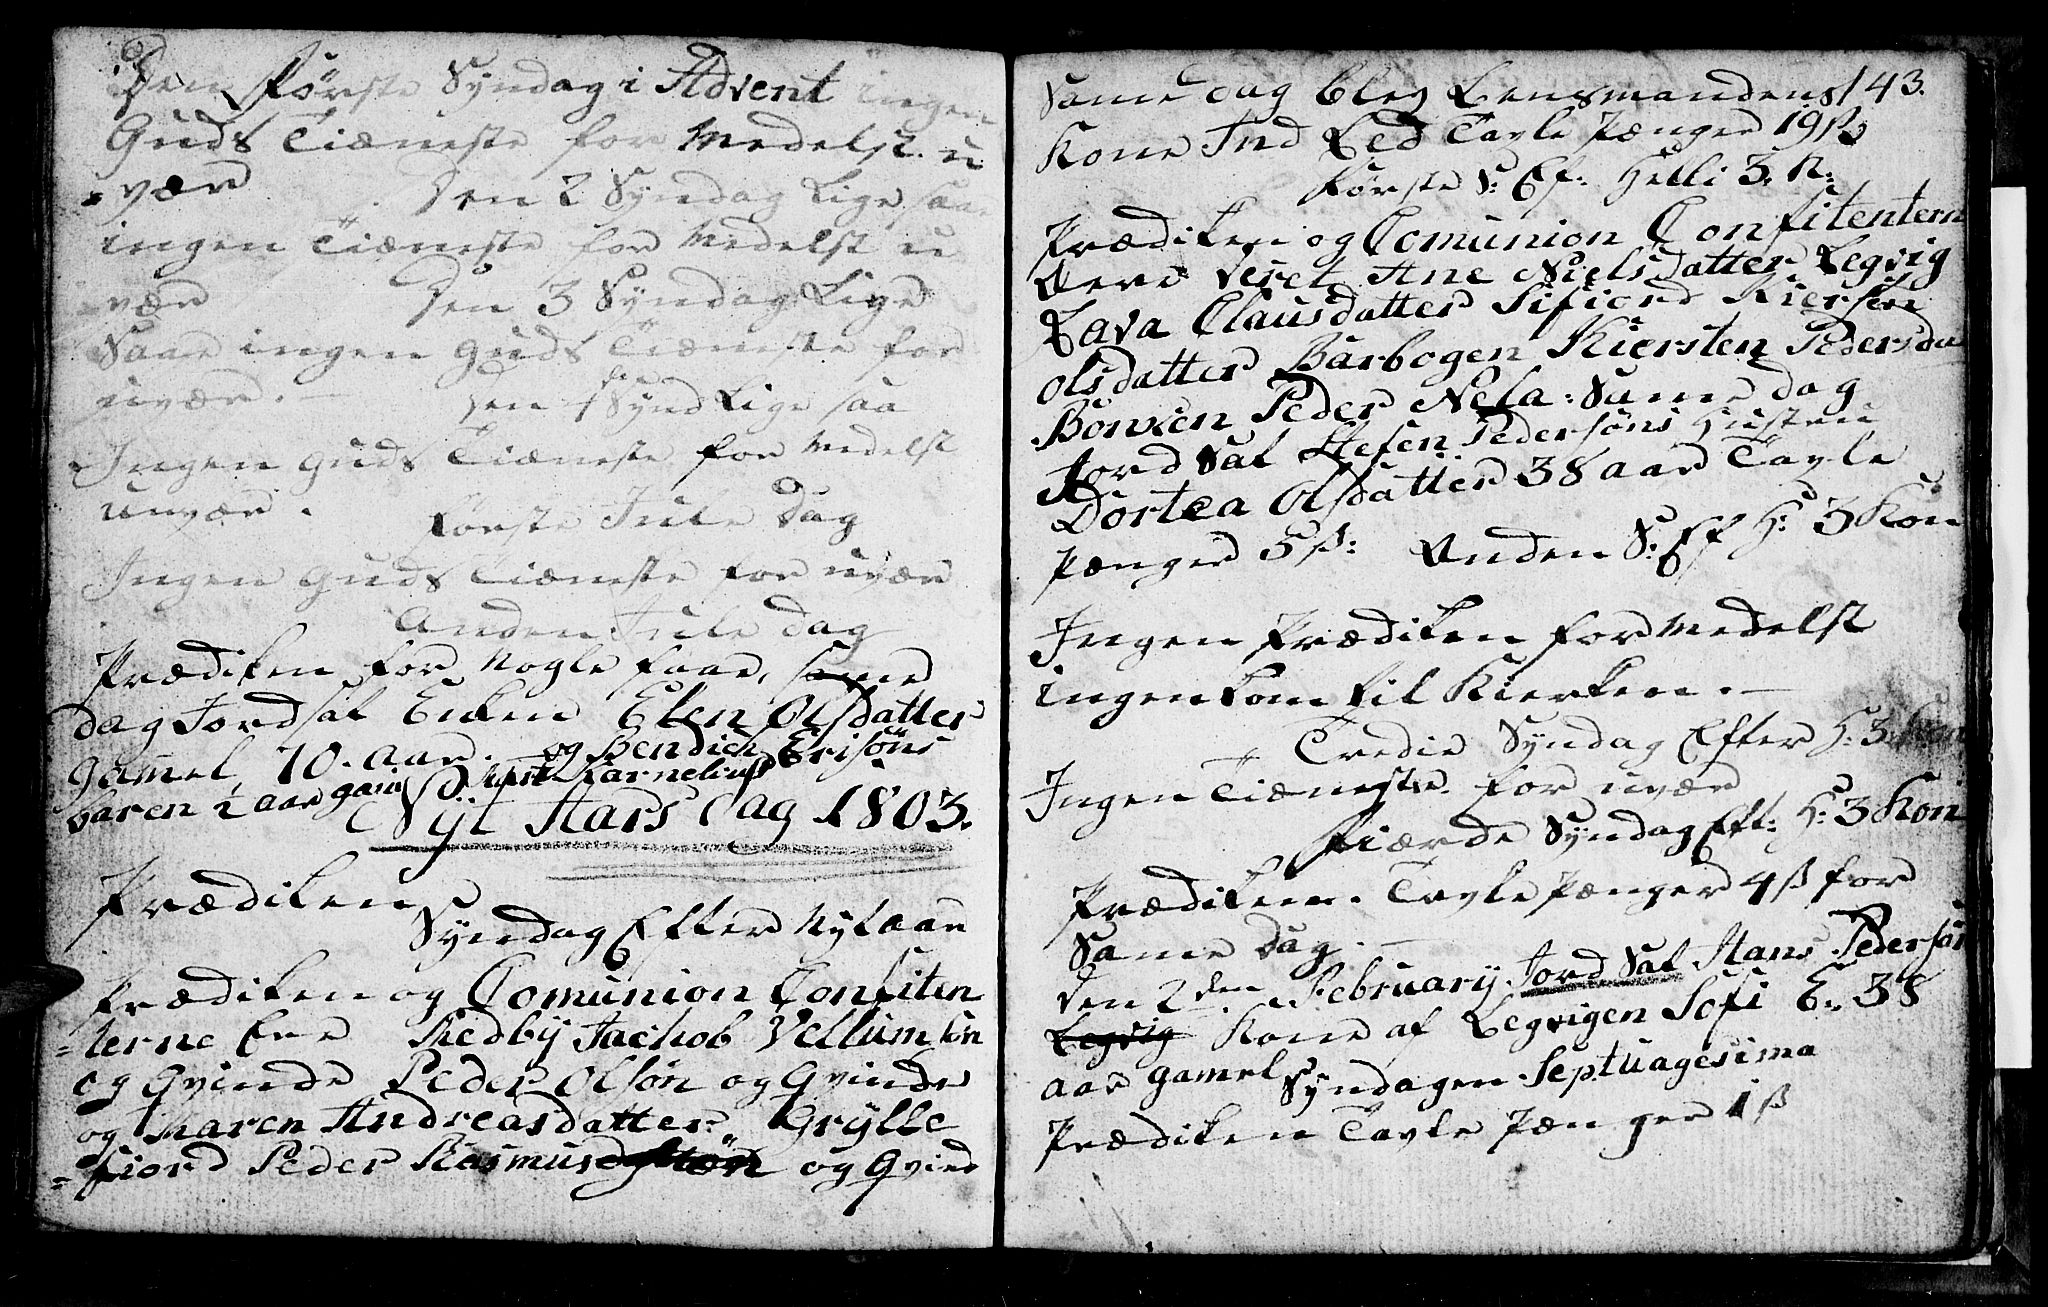 Den Første Syndag i Advent ingen
Guds Tiæneste for Medelst u
=vær Den 2 Syndag Lige saa
ingen Tiæneste for Medelst u
vær Den 3 Syndag Lige
Saae ingen Guds Tiæneste for
uvær. — Den 4 Synd Lige saa
Ingen Guds Tiæneste for Medelst
uuvær. Første Jule Dag
Ingen Guds Tiæneste for uvær
Anden Jule dag
Prædiken for Nogle faae, same
dag Jordsat Enken Elen Olsdatter
gamel 70. aar. og Bendich Erisøns
baren 2 aar gam
Nyt Aars Dag 1803.
Prædiken
Syndag Efter Nytaar
Prædiken og Comunion Confiten
=terne Ere Redby Jachob Vellumsøn
og Qvinde Peder Olsøn og Qvinde
og Maren Andreasdatter Grylle
=fiord Peder Rasmus og Qvind
Same Dag Bleg Lensmandens 143.
Kone Ind Led Tavle Pænger 19 ß
Første S: Ef: Helli 3. K:
Prædiken og Comunion Confitentern
Vere Veret Ane Nielsdatter Legvig
Lava Clausdatter Sifiord Kiersten
olsdatter Barbogen Kiersten Pedersda
Bonven Peder Nesa. Same dag
Jord Sat Stefen Pedersøns Husteru
Dortea Olsdatter 38 aar Tavle
Pænger 5 ß: Anden S: Ef H: 3 Kon
Ingen Prædiken formedelst
ingen kom til Kierken. —
Tredie Syndag Efter H: 3. Kon
Ingen Tiæneste for uvær
Fiærde Syndag Eft: H: 3 Kon
Prædiken. Tavle Pænger 4 ß for
Same Dag. —
den 2den February Jord Sat Hans Pedersøn
Legvig Kone af Legvigen Sofi E. 38
aar gamel Syndagen Septuagesima
Prædiken Tavle Pænger 1 ß